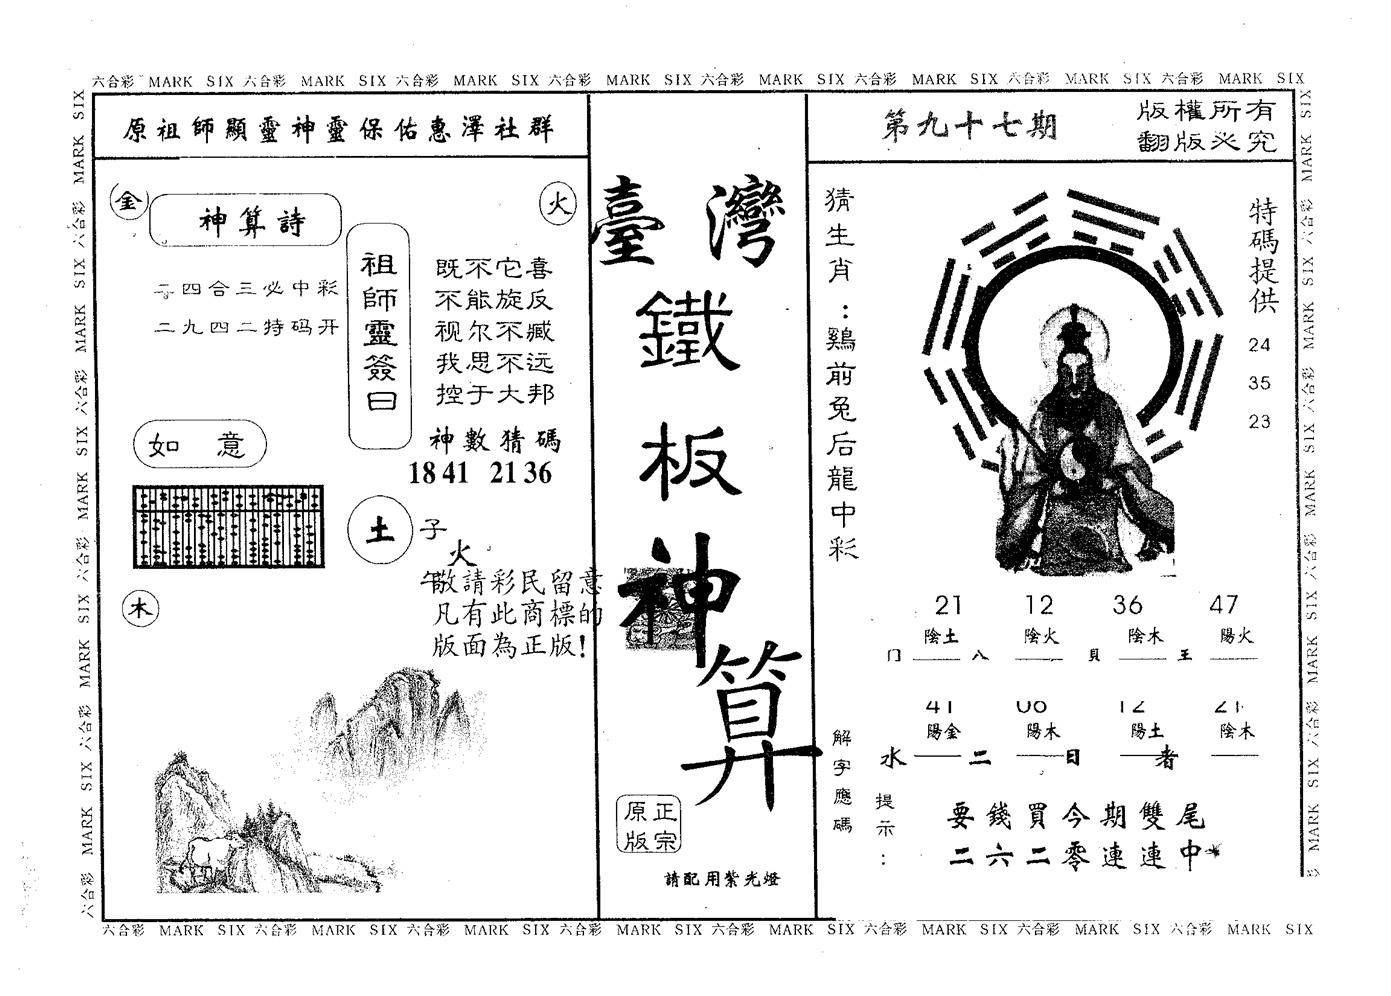 六合彩 MARK SIX 六合彩 MARK SIX 六合彩 MARK SIX 六合彩 MARK SIX 六合彩 MARK SIX 六合彩 MARK SIX 六合彩 MARK SIX 六合彩 MARK SIX
原祖師顯靈神靈保佑惠澤社群
金
神算詩
火
二四合三必中彩
二九四二特码开
祖師靈簽曰
既不它喜
不能旋反
视尔不臧
我思不远
控于大邦
神數猜碼
18 41 21 36
如意
土
子
火
午
敬請彩民留意
凡有此商標的
版面為正版!
木
臺灣
鐵
板
神
算
正宗
原版
請配用紫光燈
第九十七期
版權所有
翻版必究
猜生肖:鷄前兔后龍中彩
特碼提供
24
35
23
21 12 36 47
陰土 陰火 陰木 陽火
门 八 貝 王
41 06 12 21
陽金 陽木 陽土 陰木
水 二 日 者
解字應碼
提示:
要錢買今期雙尾
二六二零連連中
六合彩 MARK SIX 六合彩 MARK SIX 六合彩 MARK SIX 六合彩 MARK SIX 六合彩 MARK SIX 六合彩 MARK SIX 六合彩 MARK SIX 六合彩 MARK SIX